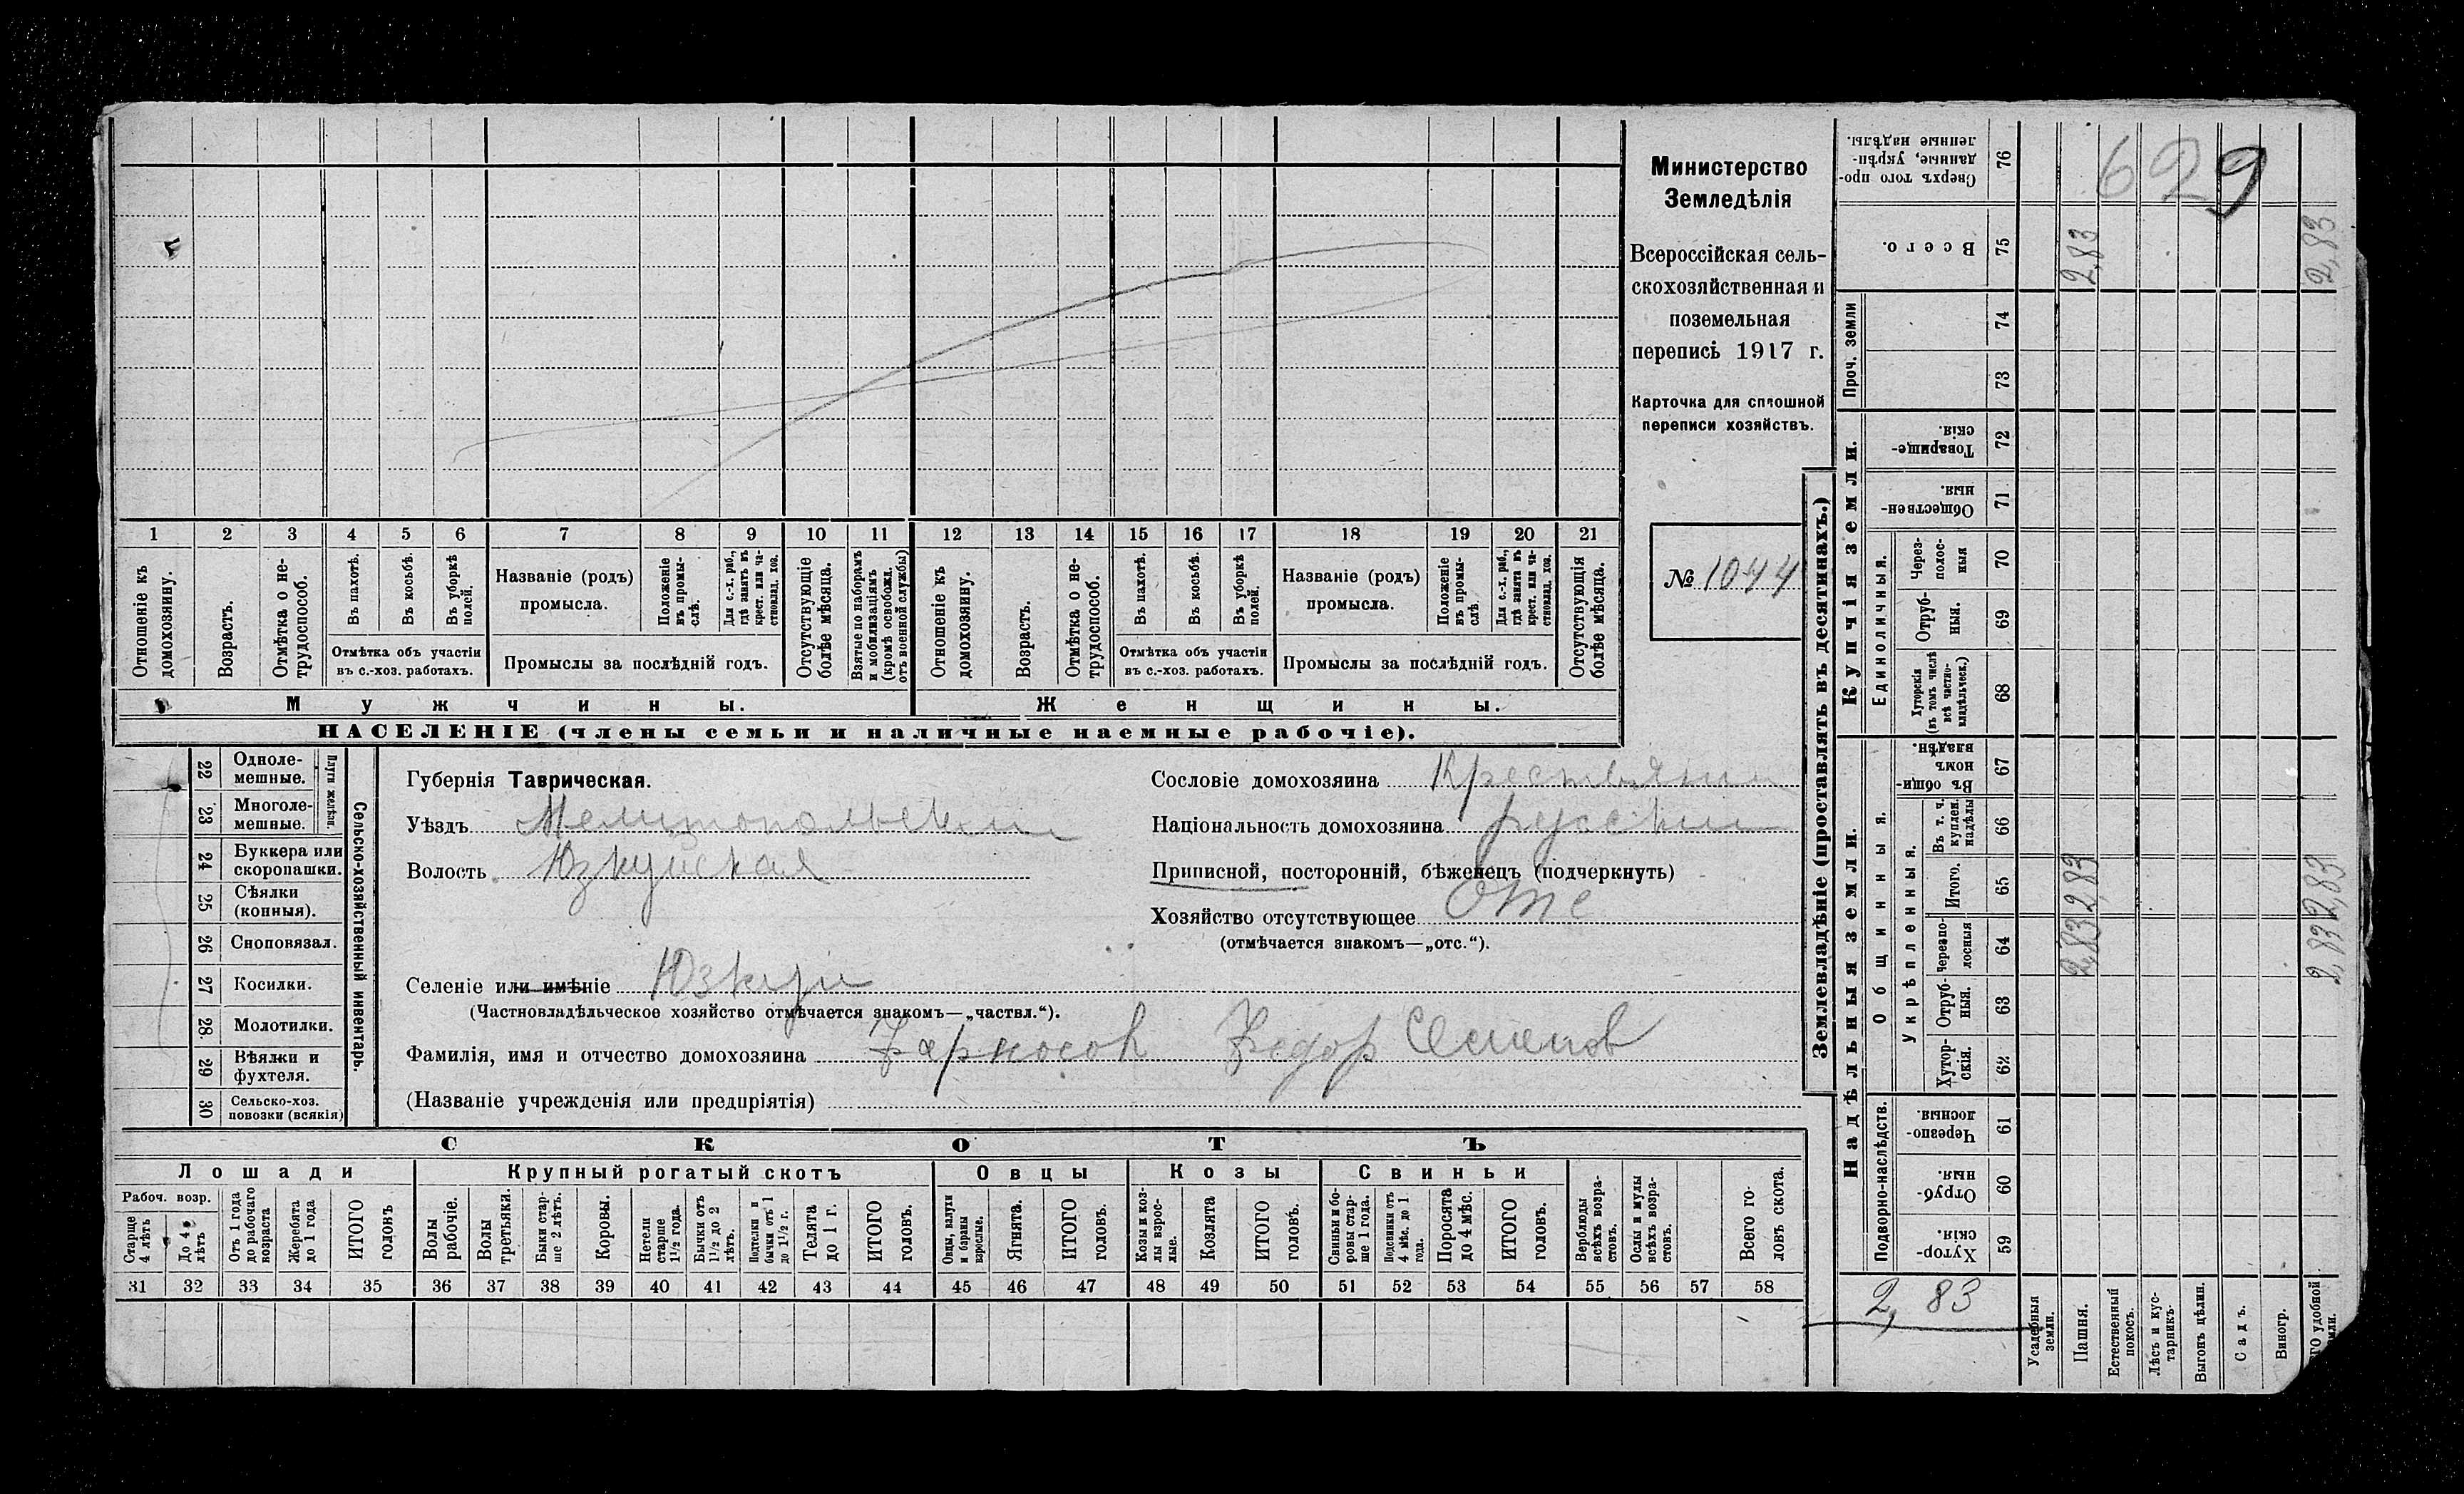 Министерство
Земледѣлія
Всероссійская сель-
скохозяйственная и
поземельная
перепись 1917 г.
Карточка для сплошной
переписи хозяйствъ.
№ 1044
629
1 2 3 4 5 6 7 8 9 10 11 12 13 14 15 16 17 18 19 20 21
Отношеніе къ домохозяину.
Возрастъ.
Отмѣтка о не-трудоспособ.
Въ пахотѣ.
Въ косьбѣ.
Въ уборкѣ полей.
Отмѣтка объ участіи
въ с.-хоз. работахъ.
Названіе (родъ)
промысла.
Положеніе въ промы-слѣ.
Для с.-х. раб., гдѣ занятъ въ крест. или ча-стновлад. хоз.
Промыслы за послѣдній годъ.
Отсутствующіе болѣе мѣсяца.
Взятые по наборамъ и мобилизаціямъ (кромѣ освобожд. отъ военной службы)
Отношеніе къ домохозяину.
Возрастъ.
Отмѣтка о не-трудоспособ.
Въ пахотѣ.
Въ косьбѣ.
Въ уборкѣ полей.
Отмѣтка объ участіи
въ с.-хоз. работахъ.
Названіе (родъ)
промысла.
Положеніе въ промы-слѣ.
Для с.-х. раб., гдѣ занята въ крест. или ча-стновлад. хоз.
Промыслы за послѣдній годъ.
Отсутствующія болѣе мѣсяца.
Мужчины.
Женщины.
НАСЕЛЕНІЕ (члены семьи и наличные наемные рабочіе).
Сельско-хозяйственный инвентарь.
Плуги желѣзн.
22 Одноле-мешные.
23 Многоле-мешные.
24 Буккера или скоропашки.
25 Сѣялки (конныя).
26 Сноповязал.
27 Косилки.
28. Молотилки.
29 Вѣялки и фухтеля.
30 Сельско-хоз. повозки (всякія)
Губернія Таврическая.
Уѣздъ Мелитопольский
Волость Юзкуйская
Селеніе или имѣніе Юзкуи
(Частновладѣльческое хозяйство отмѣчается знакомъ—„частвл.“).
Фамилія, имя и отчество домохозяина Федор Семенов
(Названіе учрежденія или предпріятія)
Сословіе домохозяина Крестьянин
Національность домохозяина русский
Приписной, посторонній, бѣженецъ (подчеркнуть)
Хозяйство отсутствующее Отс
(отмѣчается знакомъ—„отс.“).
СКОТЪ
Лошади
Крупный рогатый скотъ
Овцы
Козы
Свиньи
Рабоч. возр.
Старше 4 лѣтъ
До 4 лѣтъ
Отъ 1 года до рабочаго возраста
Жеребята до 1 года
ИТОГО головъ
Волы рабочіе.
Волы третьяки.
Быки стар-ше 2 лѣтъ.
Коровы.
Нетели старше 1½ года.
Бычки отъ 1½ до 2 лѣтъ.
Подтелки и бычки отъ 1 до 1½ г.
Телята до 1 г.
ИТОГО головъ.
Овцы, валухи и бараны взрослые.
Ягнята.
ИТОГО головъ.
Козы и коз-лы взрос-лые.
Козлята
ИТОГО головъ.
Свиньи и бо-ровы стар-ше 1 года.
Подсвинки отъ 4 мѣс. до 1 года.
Поросята до 4 мѣс.
ИТОГО головъ.
Верблюды всѣхъ возра-стовъ.
Ослы и мулы всѣхъ возра-стовъ.
Всего го-ловъ скота.
31 32 33 34 35 36 37 38 39 40 41 42 43 44 45 46 47 48 49 50 51 52 53 54 55 56 57 58
Землевладѣніе (проставлять въ десятинахъ.)
Надѣльныя земли.
Купчія земли.
Проч. земли
Подворно-наслѣдств.
Общинныя.
Укрѣпленныя.
Единоличныя.
59 Хутор-скія.
60 Отруб-ныя.
61 Черезпо-лосныя.
62 Хутор-скія.
63 Отруб-ныя.
64 Черезпо-лосныя
65 Итого.
66 Въ т. ч. куплен. надѣлы
67 Въ общи-номъ владѣн.
68 Хуторскія (въ томъ числѣ всѣ частно-владѣльческ.)
69 Отруб-ныя.
70 Через-полос-ныя
71 Обществен-ныя.
72 Товарище-скія.
73
74
75 Всего.
76 Сверхъ того про-данные, укрѣп-ленные надѣлы.
2,83
Усадебныя земли.
Пашня. 2,83 2,83 2,83
Естественный покосъ.
Лѣсъ и кус-тарникъ.
Выгонъ цѣлин.
Садъ.
Виногр.
ГО удобной
мли. 2,83 2,83 2,83